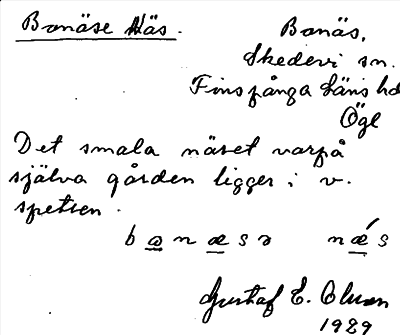 Bonäse Näs.
Bonäs,
Skedevi sn.
Finspånga läns hd
Ögl
Det smala näset varpå
själva gården ligger i v.
spetsen.
b a n æ s ə n ǽ s
Gustaf E. Olsson
1929